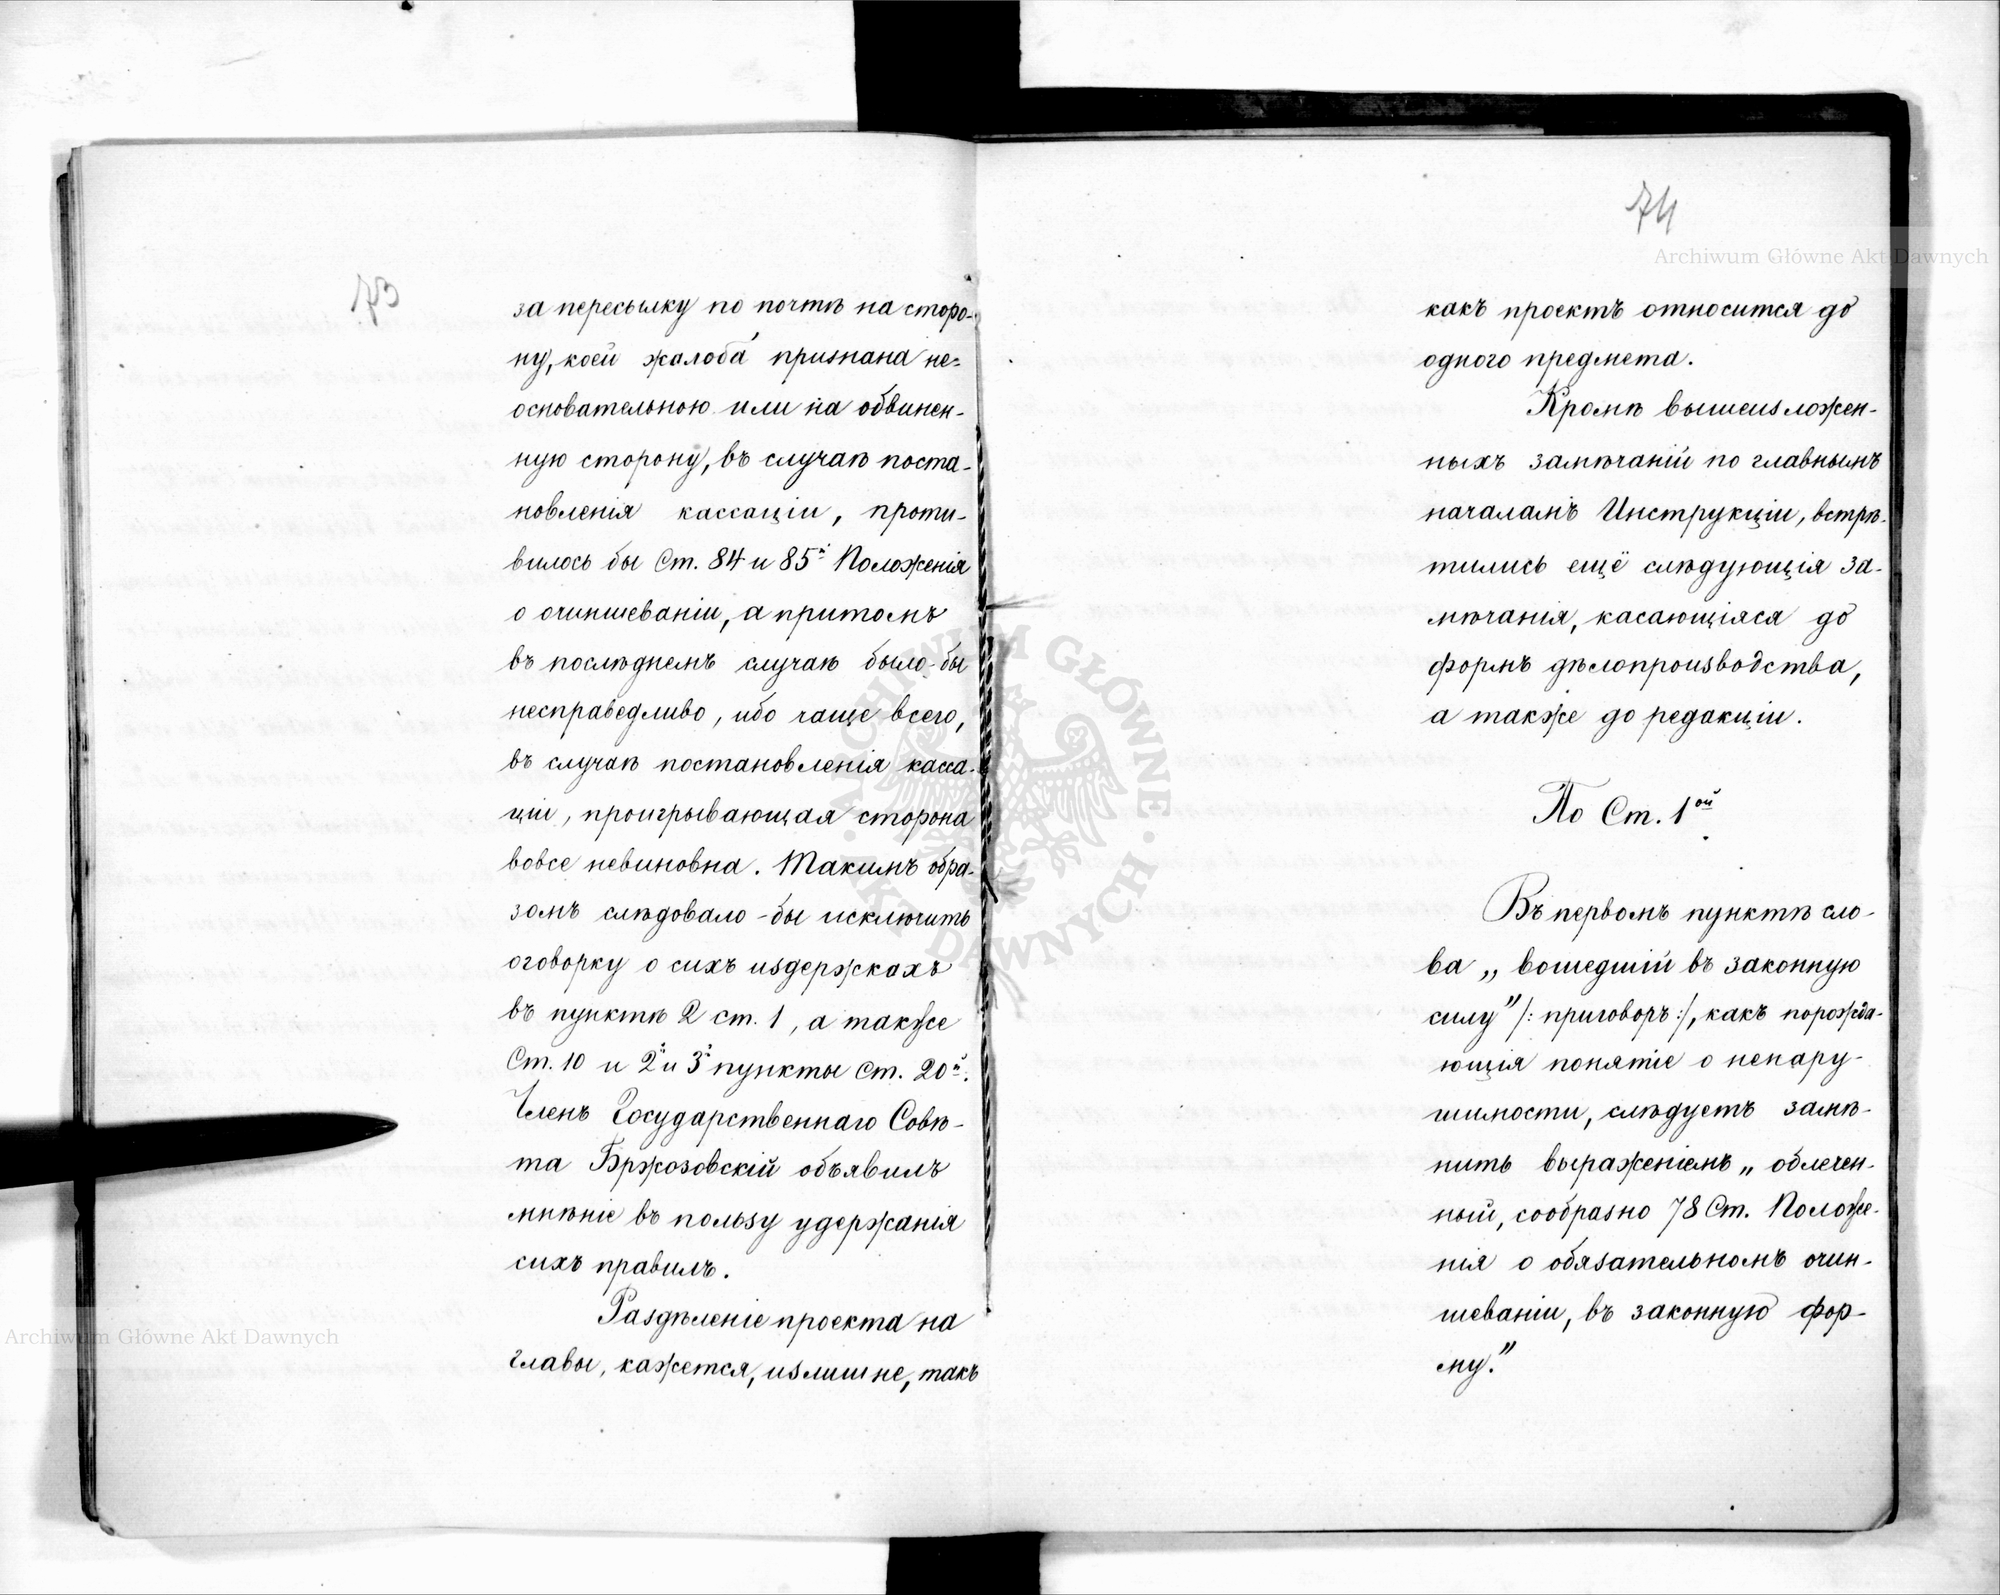 73
за пересылку по почтѣ на сторо-
ну, коей жалоба признана не-
основательною или на обвинен-
ную сторону, въ случаѣ поста-
новленія кассаціи, проти-
вилось бы Ст. 84 и 85й Положенія
о очиншеваніи, а притомъ
въ послѣднемъ случаѣ было-бы
несправедливо, ибо чаще всего,
въ случаѣ постановленія касса-
ціи, проигрывающая сторона
вовсе невиновна. Такимъ обра-
зомъ слѣдовало-бы исключить
оговорку о сихъ издержкахъ
въ пунктѣ 2 ст. 1, а также
Ст. 10 и 2й и 3й пункты Ст. 20й.
Членъ Государственнаго Совѣ-
та Бржозовскій объявилъ
мнѣніе въ пользу удержанія
сихъ правилъ.
Раздѣленіе проекта на
главы, кажется, излишне, такъ
74
какъ проектъ относится до
одного предмета.
Кромѣ вышеизложен-
ныхъ замѣчаній по главнымъ
началамъ Инструкціи, встрѣ-
тились ещё слѣдующія за-
мѣчанія, касающіяся до
формъ дѣлопроизводства,
а также до редакціи.
По Ст. 1ой
Въ первомъ пунктѣ сло-
ва „вошедшій въ законную
силу" /: приговоръ :/, какъ порожда-
ющія понятіе о ненару-
шимости, слѣдуетъ замѣ-
нить выраженіемъ „облечен-
ный, сообразно 78 Ст. Положе-
нія о обязательномъ очин-
шеваніи, въ законную фор-
му."
Archiwum Główne Akt Dawnych
Archiwum Główne Akt Dawnych
ARCHIWUM GŁÓWNE · AKT DAWNYCH ·